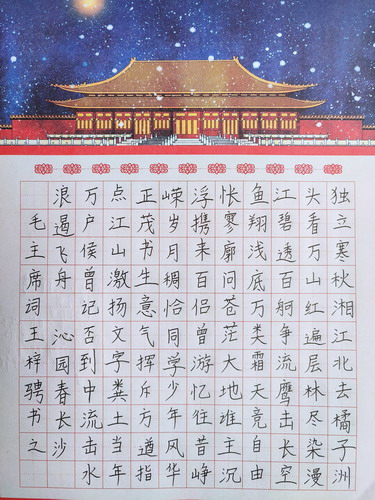 独立寒秋湘江北去橘子洲
头看万山红遍层林尽染漫
江碧透百舸争流鹰击长空
鱼翔浅底万类霜天竞自由
怅寥廓问苍茫大地谁主沉
浮携来百侣曾游忆往昔峥
嵘岁月稠恰同学少年风华
正茂书生意气挥斥方遒指
点江山激扬文字粪土当年
万户侯曾记否到中流击水
浪遏飞舟 沁园春长沙
毛主席词王梓骋书之